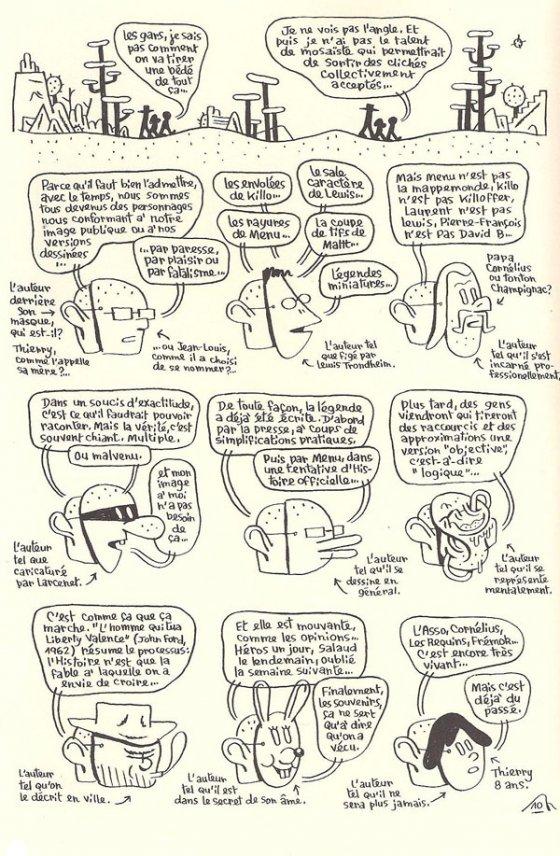 les gars, je sais
pas comment
on va tirer
une bédé
de tout
ça...
Je ne vois pas l'angle. Et
puis je n'ai pas le talent
de mosaïste qui permettrait
de sortir des clichés
collectivement
acceptés...
Parce qu'il faut bien l'admettre,
avec le temps, nous sommes
tous devenus des personnages
nous conformant à notre
image publique ou à nos
versions
dessinées
...
...par paresse,
par plaisir ou
par fatalisme...
L'auteur
derrière
son →
masque,
qui est-il?
Thierry,
comme l'appelle
sa mère?...
...ou Jean-Louis,
comme il a choisi
de se nommer?...
les envolées
de Killo...
le sale
caractère
de Lewis...
les rayures
de Menu...
la coupe
de tifs de
Matt...
Légendes
miniatures...
L'auteur tel
que figé par
Lewis Trondheim.
Mais Menu n'est pas
la mappemonde, Killo
n'est pas Killoffer,
Laurent n'est pas
Lewis, Pierre-François
n'est pas David B...
papa
Cornélius
ou tonton
Champignac?
L'auteur
tel qu'il s'est
incarné pro-
fessionellement.
Dans un soucis d'exactitude,
c'est ce qu'il faudrait pouvoir
raconter. Mais la vérité, c'est
souvent chiant. Multiple.
Ou malvenu.
et mon
image
à moi
n'a pas
besoin
de
ça...
L'auteur
tel que
caricaturé
par Larcenet.
De toute façon, la légende
a déjà été écrite. D'abord
par la presse, à coups de
simplifications pratiques.
Puis par Menu, dans
une tentative d'His-
toire officielle...
L'auteur
tel qu'il se
dessine en
général.
Plus tard, des gens
viendront qui tireront
des raccourcis et des
approximations une
version "objective",
c'est-à-dire
"logique"...
L'auteur
tel qu'il se
représente
mentalement.
C'est comme ça que ça
marche. "L'homme qui tua
Liberty Valence" (John Ford,
1962) résume le processus:
l'Histoire n'est que la
fable à laquelle on a
envie de croire...
L'auteur
tel qu'on
le décrit en ville. →
Et elle est mouvante,
comme les opinions...
Héros un jour, salaud
le lendemain, oublié
la semaine suivante...
Finalement,
les souvenirs,
ça ne sert
qu'à dire
qu'on a
vécu.
L'auteur
tel qu'il est
dans le secret de son âme.
L'Asso, Cornélius,
Les Requins, Frémok...
C'est encore très
vivant...
Mais c'est
déjà du
passé.
L'auteur
tel qu'il ne
sera plus jamais. →
Thierry
8 ans.
10